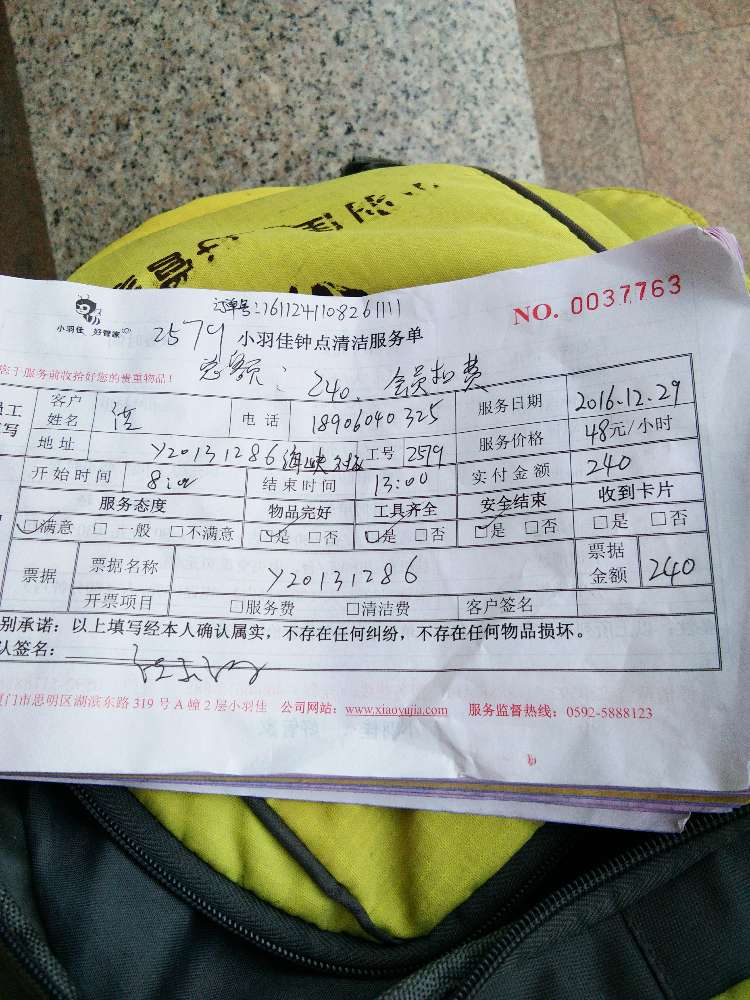 小羽佳 好管家
订单号:1611241108261111
NO. 0037763
2579 小羽佳钟点清洁服务单
于服务前收拾好您的贵重物品!
总额: 240. 会员扣费
客户姓名 电话 18906040325 服务日期 2016.12.29
地址 Y20131286 工号 2579 服务价格 48元/小时
开始时间 8:00 结束时间 13:00 实付金额 240
服务态度 物品完好 工具齐全 安全结束 收到卡片
☑满意 □一般 □不满意 ☑是 □否 ☑是 □否 ☑是 □否 □是 □否
票据 票据名称 Y20131286 票据金额 240
开票项目 □服务费 □清洁费 客户签名
别承诺:以上填写经本人确认属实,不存在任何纠纷,不存在任何物品损坏。
认签名:
门市思明区湖滨东路 319 号 A 幢 2 层小羽佳 公司网站:www.xiaoyujia.com 服务监督热线:0592-5888123